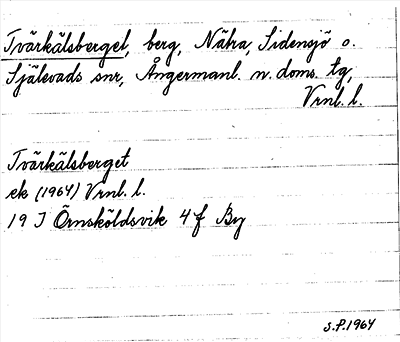 Tvärkälsberget, berg, Nätra, Sidensjö o.
Själevads snr, Ångermanl. n. doms. tg,
Vrnl. l.
Tvärkälsberget
ek (1964) Vrnl. l.
19 J Örnsköldsvik 4 f By
S.P. 1964